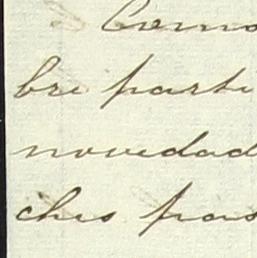 Como
bre parti
novedad
ches pas